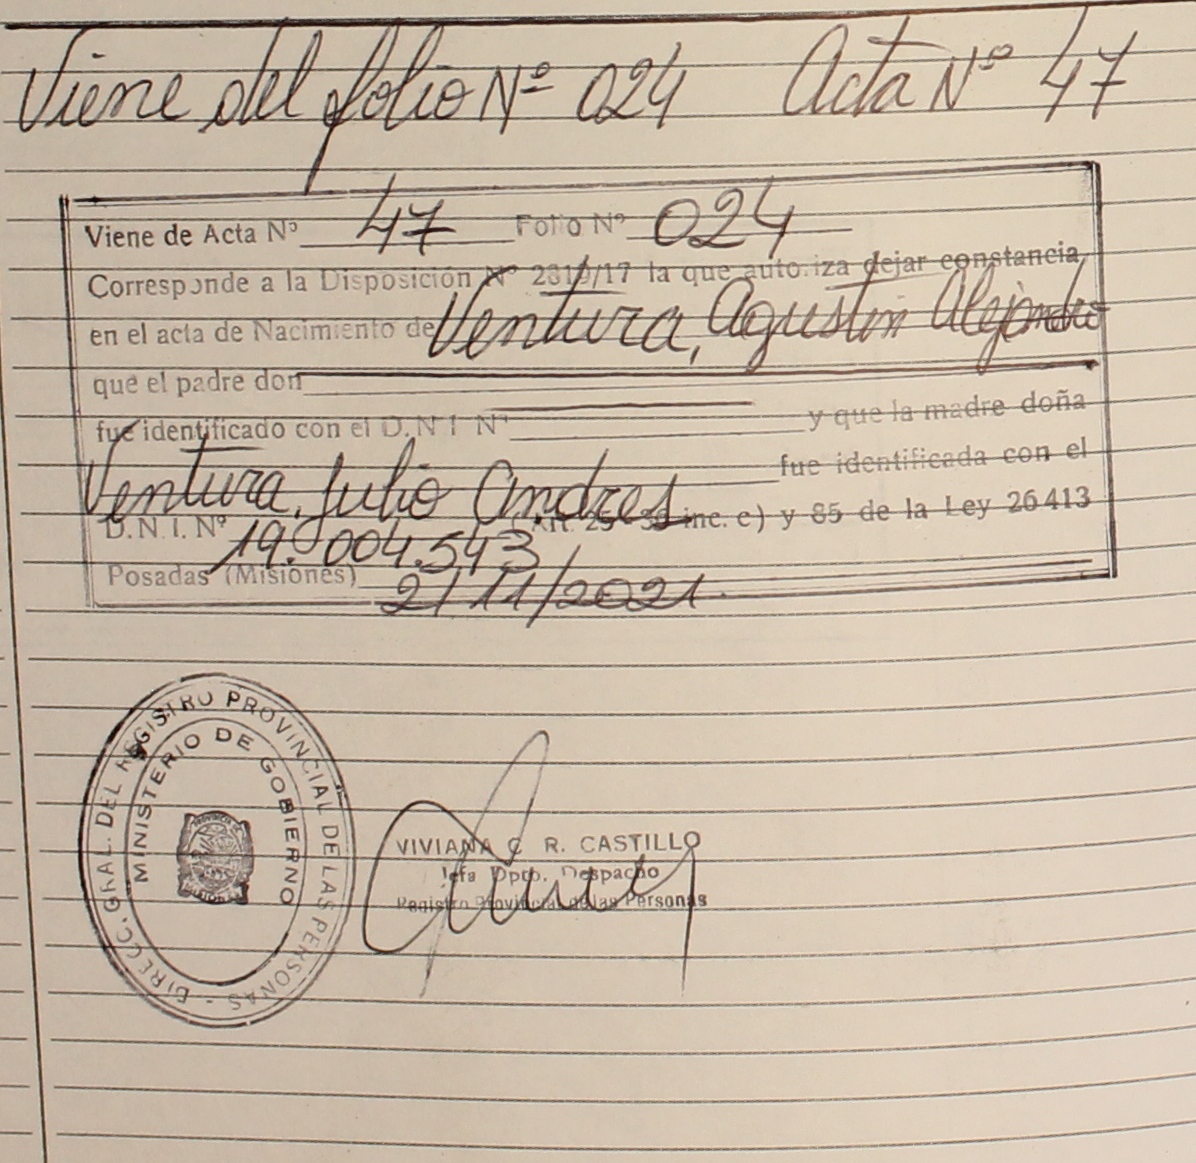 Viene del folio Nº 024 Acta Nº 47
Viene de Acta Nº 47 Folio Nº 024
Corresponde a la Disposición Nº 2319/17 la que autoriza dejar constancia
en el acta de Nacimiento de Ventura, Agustín Alejandro
que el padre don
fue identificado con el D.N.I. Nº y que la madre doña
Ventura, Julio Andres fue identificada con el
D.N.I. Nº 19.004.543 inc. e) y 85 de la Ley 26413
Posadas (Misiones) 2/11/2021.
DIRECC. GRAL. DEL REGISTRO PROVINCIAL DE LAS PERSONAS -
MINISTERIO DE GOBIERNO
VIVIANA C R. CASTILLO
Jefa Dpto. Despacho
Registro Provincial de las Personas